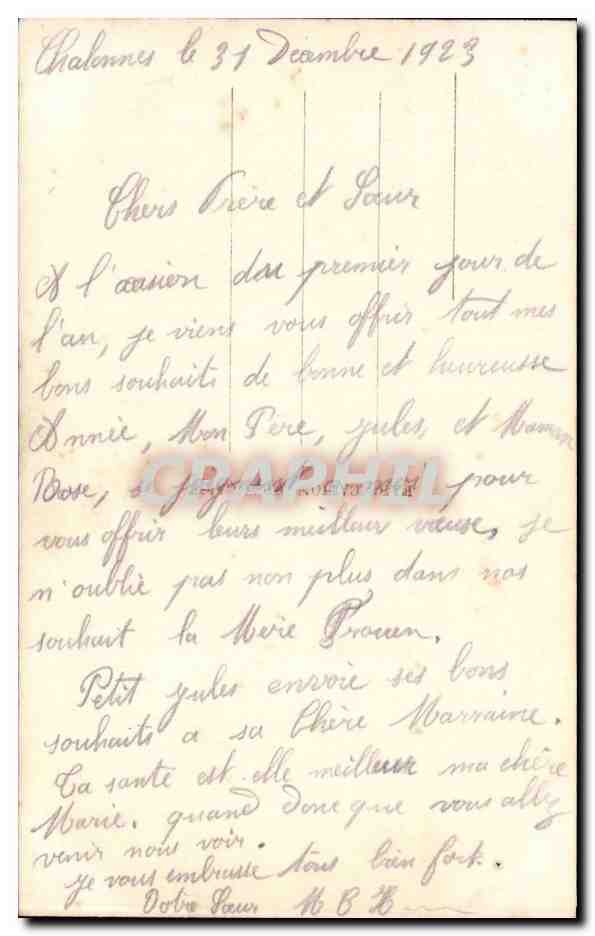 Chalonnes le 31 Décembre 1923
Chers Frère et Sœur
A l'occasion du premier jour de
l'an, je viens vous offrir tout mes
bons souhaits de bonne et heureusse
Année, Mon Père, jules, et Maman
Rose, se joignent a moi pour
vous offrir leurs meilleur vœuse, je
n'oublie pas non plus dans nos
souhait la Mère
Petit jules envoie ses bons
souhaits a sa Chère Marraine.
Ta santé est-elle meilleur ma chère
Marie. quand donc que vous allez
venir nous voir.
je vous embrasse tous bien fort.
Votre Sœur M B H
CRAPHIL